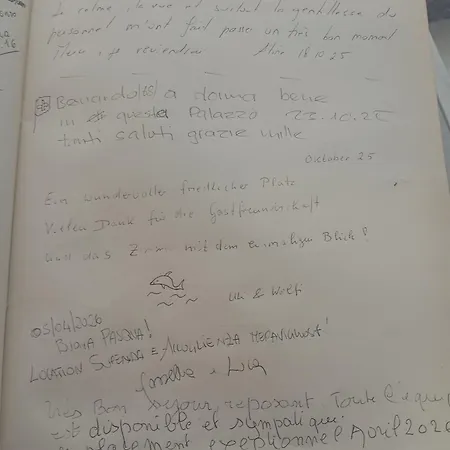 Le calme, la vue et surtout la gentillesse du
personnel m'ont fait passer un très bon moment
je reviendrai 18 10 25
a dormi bene
in questa Palazzo 23.10.25
tanti saluti grazie mille
October 25
Ein wundervoller friedlicher Platz
Vielen Dank für die Gastfreundschaft
und das Zimmer mit dem einmaligen Blick!
Uli & Wolfi
05/04/2026
BUONA PASQUA!
LOCATION STUPENDA E ACCOGLIENZA MERAVIGLIOSA!
e Luca
Très Bon séjour, reposant, Toute l'équipe
est disponible et sympatique.
exceptionnel April 2026